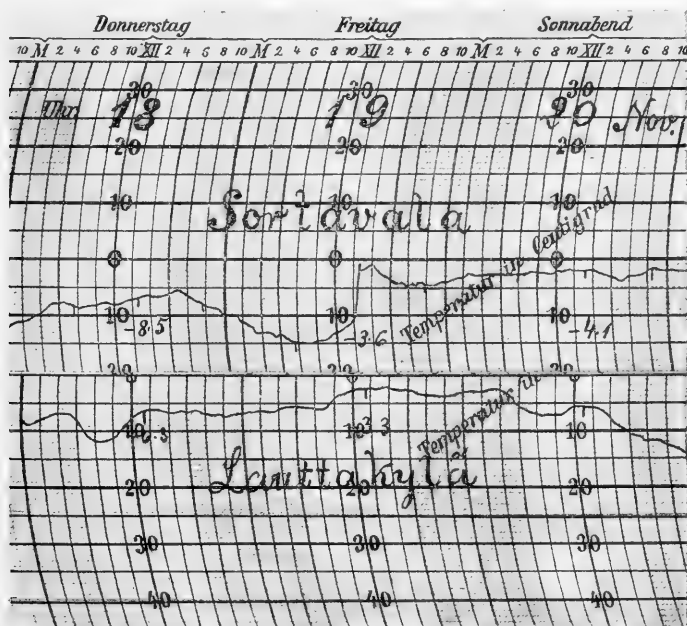 Donnerstag Freitag Sonnabend
10 M 2 4 6 8 10 XII 2 4 6 8 10 M 2 4 6 8 10 XII 2 4 6 8 10 M 2 4 6 8 10 XII 2 4 6 8 10
30 30 30
Uhr. 18 19 20 Nov.
20 20 20
10 10 10
Sortavala
0 0 0
Temperatur in Centigrad
10 10 10
-8.5 -3.6 -4.1
20 20 20
Temperatur in
10 10 10
3.3
Lauttakylä
20 20 20
30 30 30
40 40 40